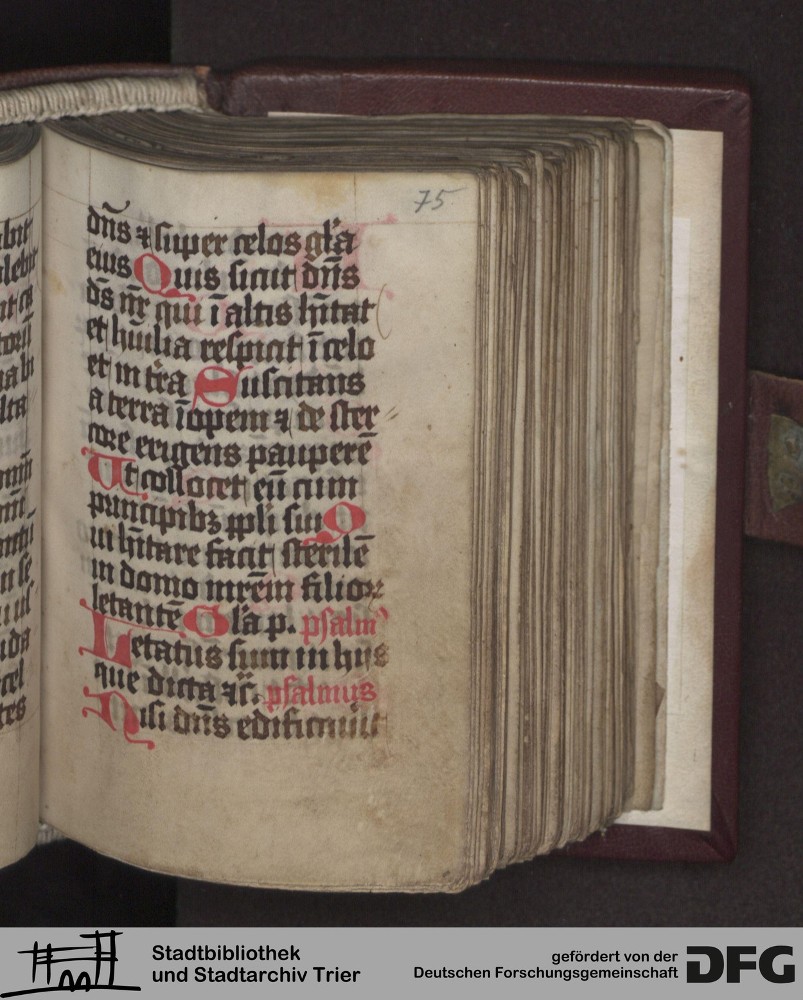 75
dn̄s ⁊ super celos gl̄a
eius Quis sicut dn̄s
ds̄ nr̄ qui ī altis hītat
et huīlia respicit ī celo
et in tr̄a Suscitans
a terra īopem ⁊ de ster
core erigens pauperē
Ut collocet eū cum
principibꝫ ppl̄i sui Q
ui hītare facit sterilē
in domo mr̄em filioꝝ
letantē Gl̄a p. psalm᾽
Letatus sum in hijs
que dicta ⁊c̄. psalmus
Nisi dn̄s edificauit
Stadtbibliothek
und Stadtarchiv Trier
gefördert von der
Deutschen Forschungsgemeinschaft
DFG